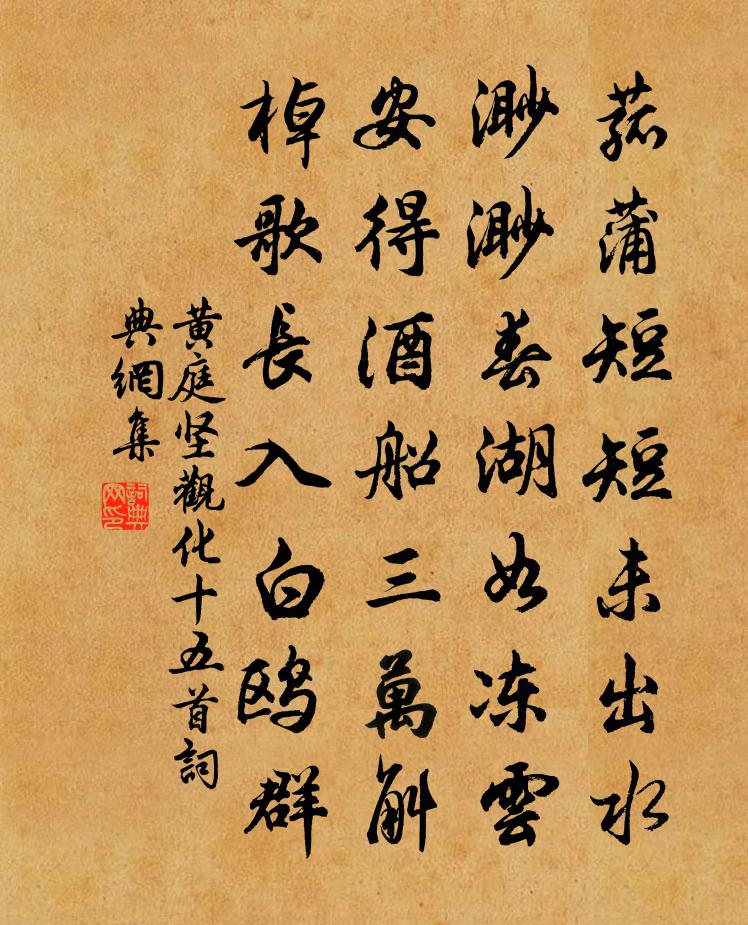 菰蒲短短未出水
渺渺春湖如冻雲
安得酒船三萬斛
棹歌長入白鸥群
黄庭坚觀化十五首詞
典網集
詞典
网印